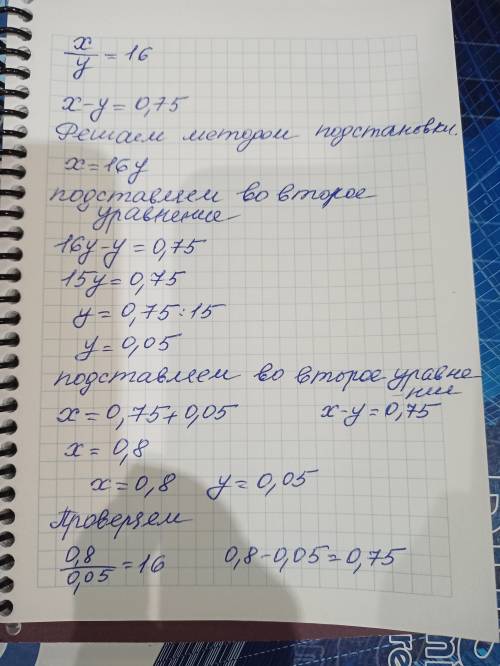 x/y = 16
x-y = 0,75
Решаем методом подстановки.
x = 16y
подставляем во второе
уравнение
16y-y = 0,75
15y = 0,75
y = 0,75 : 15
y = 0,05
подставляем во второе уравне
ние
x = 0,75+0,05 x-y = 0,75
x = 0,8
x = 0,8 y = 0,05
Проверяем
0,8/0,05 = 16 0,8-0,05 = 0,75